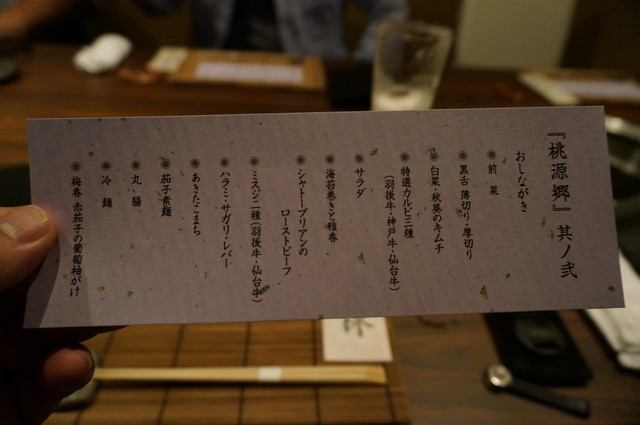 『桃源郷』其ノ弐
おしながき
◉前菜
◉黒舌 薄切り・厚切り
◉白菜・秋葵のキムチ
◉特選カルビ三種
(羽後牛・神戸牛・仙台牛)
◉サラダ
◉海苔巻きと雅香
◉シャトーブリアンの
ローストビーフ
◉ミスジ二種(羽後牛・仙台牛)
◉ハラミ・サガリ・レバー
◉あきたこまち
◉茄子素麺
◉丸腸
◉冷麺
◉梅香 赤茄子の葡萄柚がけ